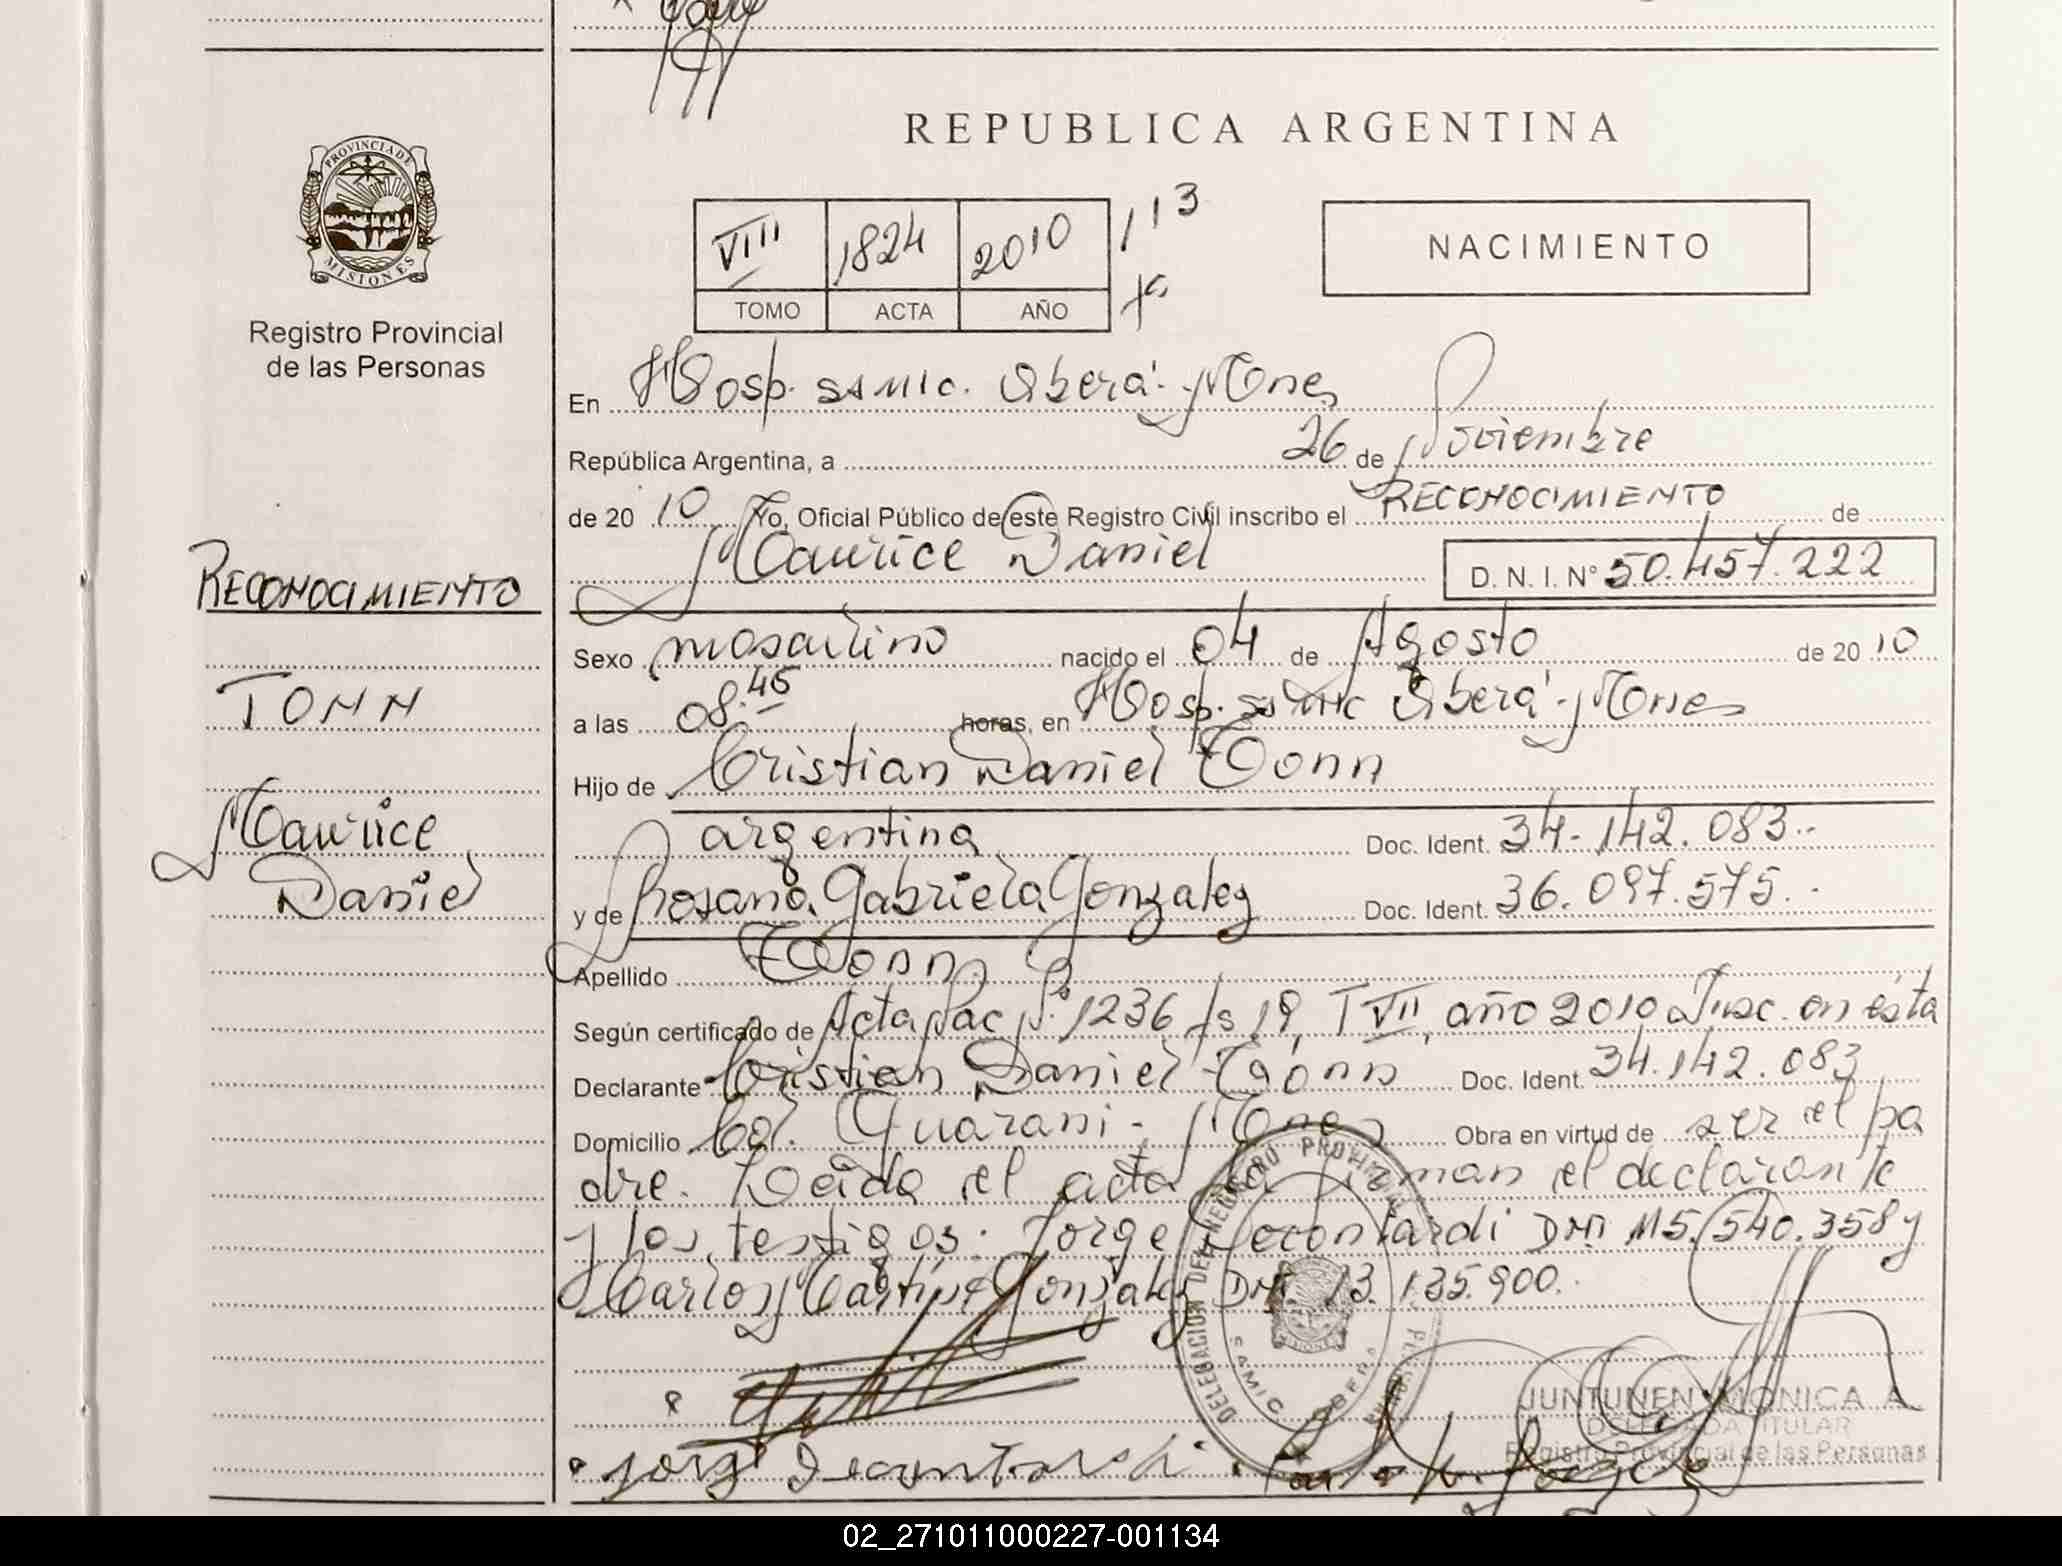 REPUBLICA ARGENTINA
PROVINCIA DE MISIONES
Registro Provincial
de las Personas
VIII 1824 2010 113
TOMO ACTA AÑO
NACIMIENTO
En Hosp. SAMIC. Oberá - Mnes
República Argentina, a 26 de Noviembre
de 20 10 Yo, Oficial Público de este Registro Civil inscribo el RECONOCIMIENTO de
Maurice Daniel D. N. I. Nº 50.457.222
RECONOCIMIENTO
TONN
Maurice
Daniel
Sexo masculino nacido el 04 de Agosto de 20 10
a las 08.45 horas, en Hosp. SAMIC Oberá - Mnes
Hijo de Cristian Daniel Tonn
argentina Doc. Ident. 34.142.083.-
y de Rosana Gabriela Gonzalez Doc. Ident. 36.097.575.-
Apellido Tonn
Según certificado de Acta Nac Nº 1236 fs 19, T VII, año 2010 Insc. en ésta
Declarante Cristian Daniel Tonn Doc. Ident. 34.142.083
Domicilio Col. Guarani - Mnes Obra en virtud de ser el pa
dre. Leída el acta la firman el declarante
y los testigos: Jorge DNI M5.540.358 y
Carlos Gonzalez DNI 13.135.900.-
DELEGACION DEL REGISTRO PROVINCIAL
SAMIC OBERA
JUNTUNEN MONICA A.
DELEGADA TITULAR
Registro Provincial de las Personas
02_271011000227-001134